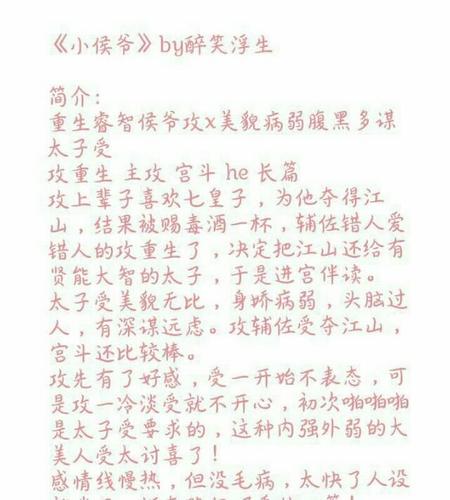 《小侯爷》by醉笑浮生
简介：
重生睿智侯爷攻x美貌病弱腹黑多谋
太子受
攻重生 主攻 宫斗 he 长篇
攻上辈子喜欢七皇子，为他夺得江
山，结果被赐毒酒一杯，辅佐错人爱
错人的攻重生了，决定把江山还给有
贤能大智的太子，于是进宫伴读。
太子受美貌无比，身娇病弱，头脑过
人，有深谋远虑。攻辅佐受夺江山，
宫斗还比较棒。
攻先有了好感，受一开始不表态，可
是攻一冷淡受就不开心，初次啪啪啪
是太子受要求的，这种内强外弱的大
美人受太讨喜了！
感情线慢热，但没毛病，太快了人设